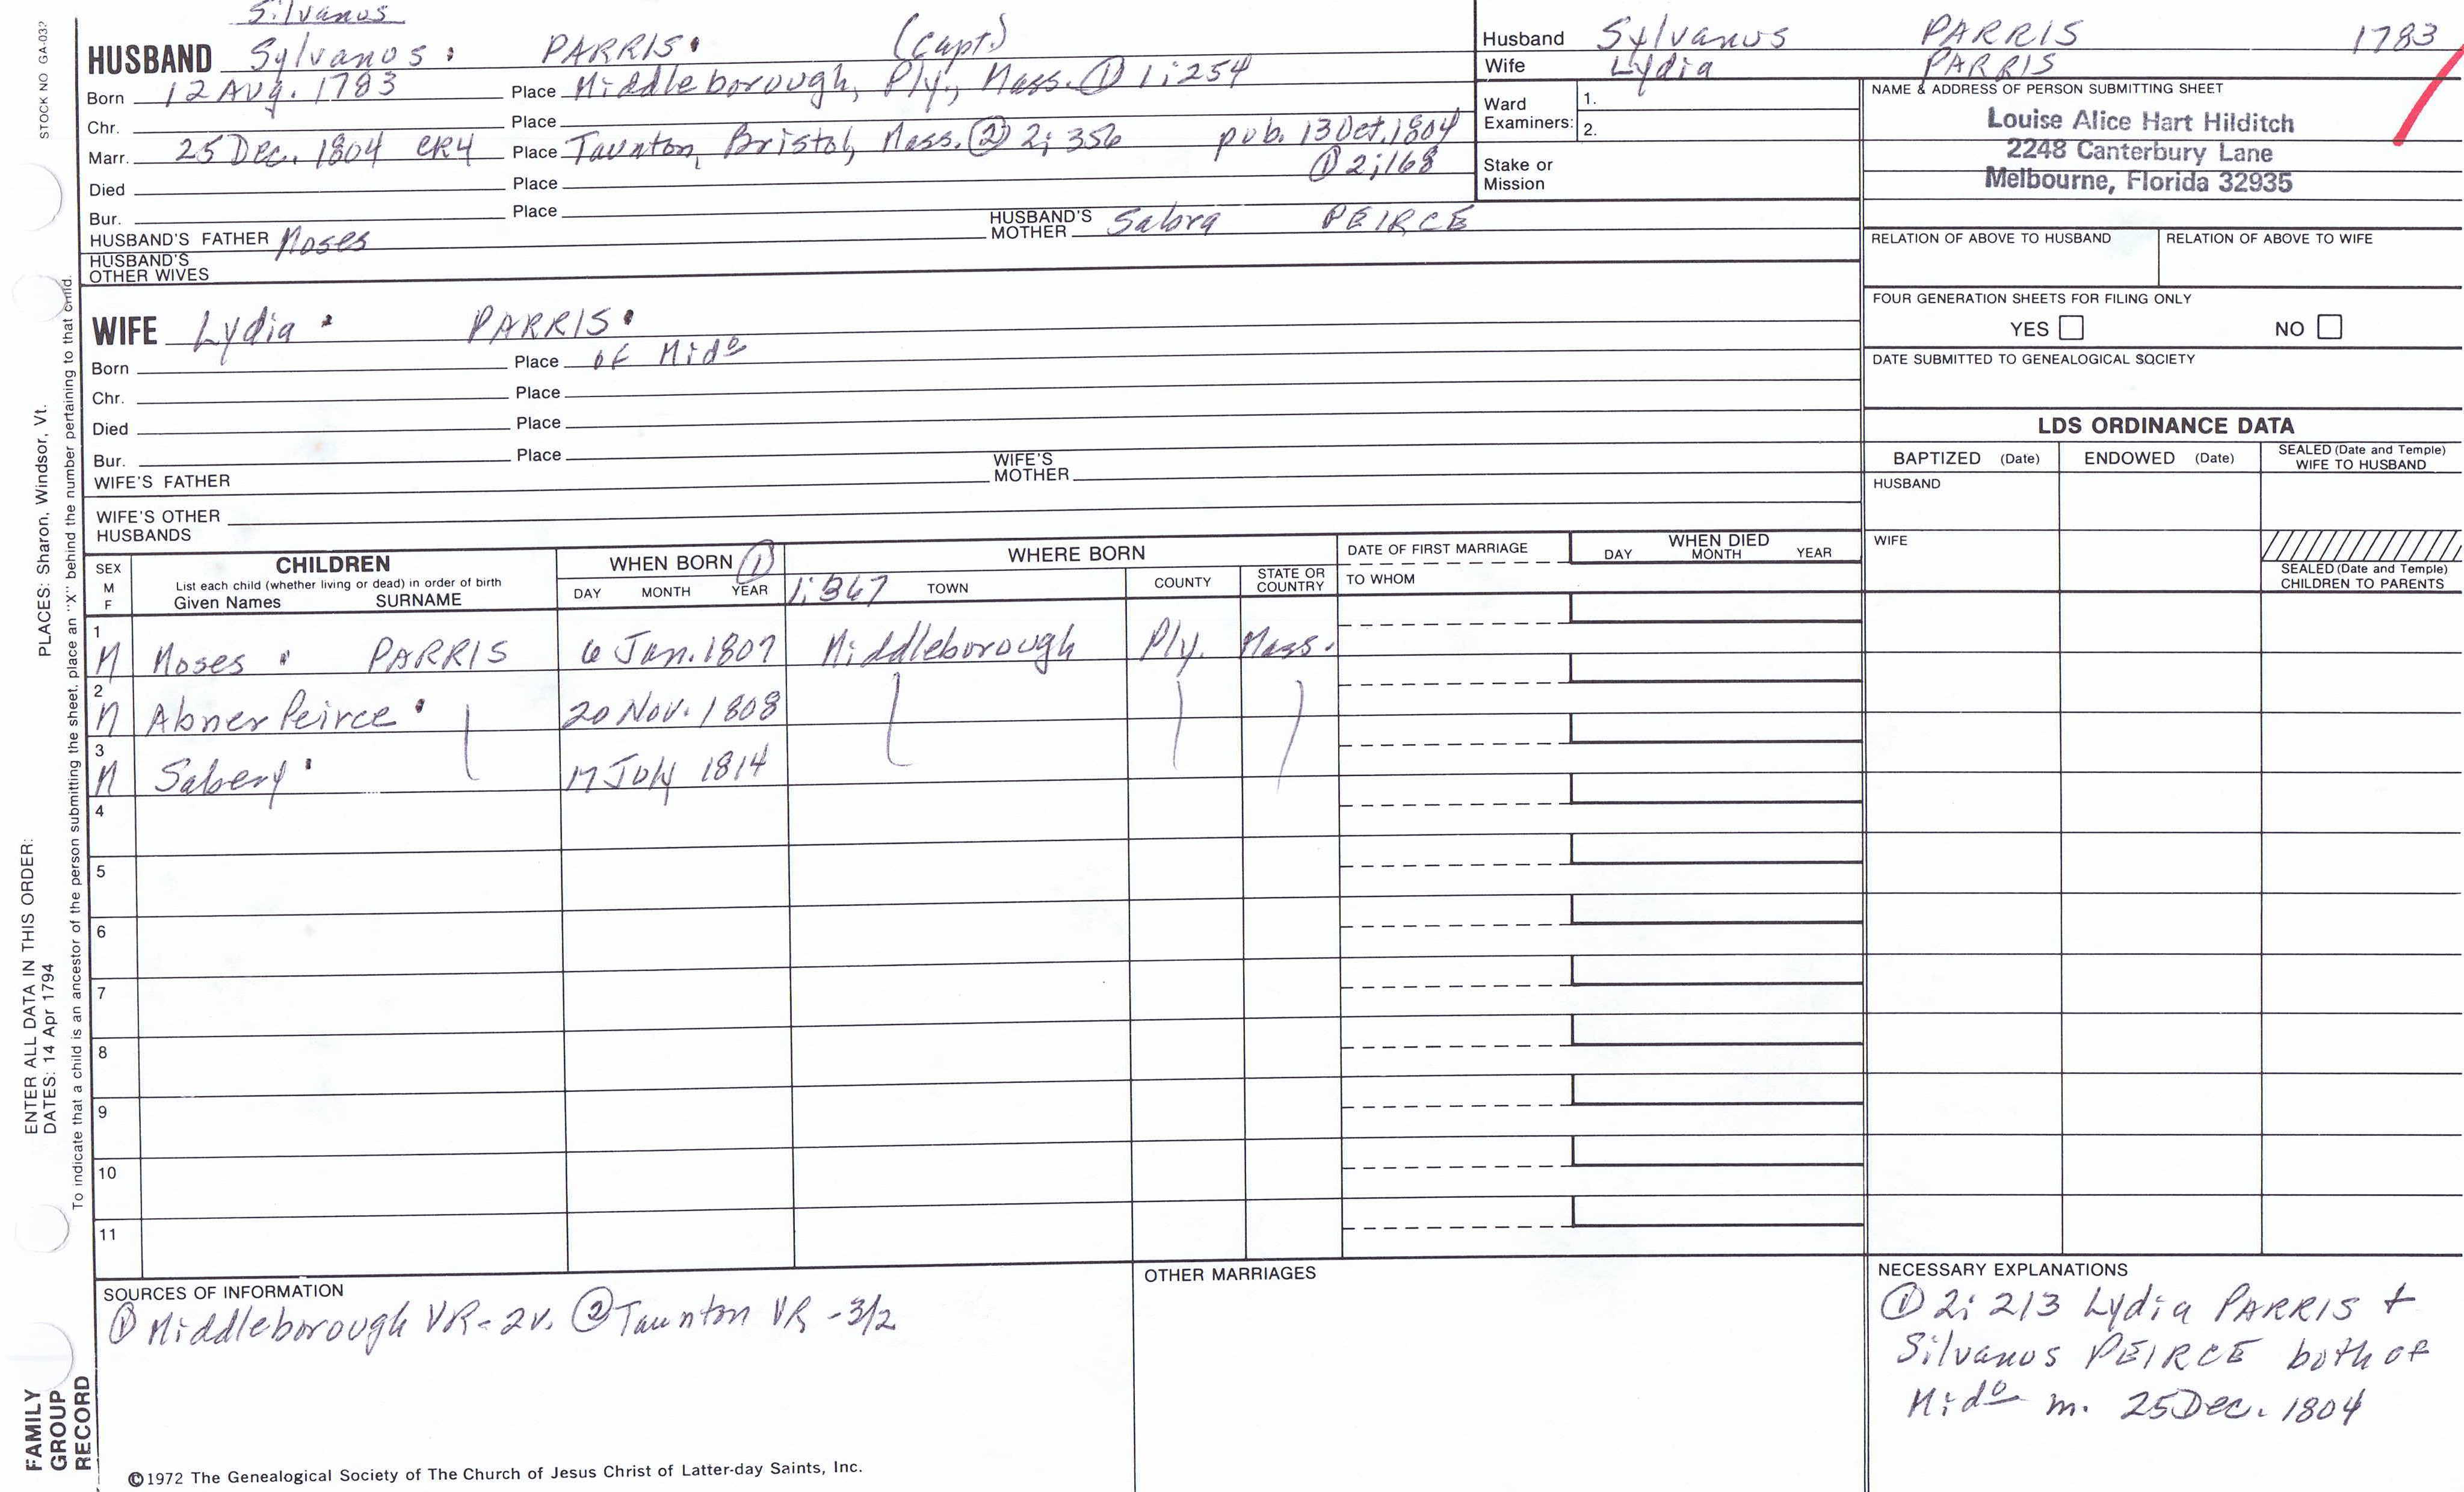 Silvanus
HUSBAND Sylvanus PARRIS (Capt.)
Born 12 Aug. 1783 Place Middleborough, Ply., Mass. ① 1:254
Chr. Place
Marr. 25 Dec. 1804 CR4 Place Taunton, Bristol, Mass. ② 2:356 pub. 13 Oct. 1804
① 2:168
Died Place
Bur. Place
HUSBAND'S FATHER Moses HUSBAND'S MOTHER Sabra PEIRCE
HUSBAND'S OTHER WIVES
WIFE Lydia PARRIS
Born Place of Midº
Chr. Place
Died Place
Bur. Place
WIFE'S FATHER WIFE'S MOTHER
WIFE'S OTHER HUSBANDS
Husband Sylvanus PARRIS 1783
Wife Lydia PARRIS
Ward Examiners: 1.
2.
Stake or Mission
NAME & ADDRESS OF PERSON SUBMITTING SHEET
Louise Alice Hart Hilditch
2248 Canterbury Lane
Melbourne, Florida 32935
RELATION OF ABOVE TO HUSBAND RELATION OF ABOVE TO WIFE
FOUR GENERATION SHEETS FOR FILING ONLY
YES NO
DATE SUBMITTED TO GENEALOGICAL SOCIETY
LDS ORDINANCE DATA
BAPTIZED (Date) ENDOWED (Date) SEALED (Date and Temple) WIFE TO HUSBAND
HUSBAND
WIFE
SEALED (Date and Temple) CHILDREN TO PARENTS
SEX M F CHILDREN WHEN BORN ① WHERE BORN DATE OF FIRST MARRIAGE WHEN DIED
List each child (whether living or dead) in order of birth
Given Names SURNAME DAY MONTH YEAR 1:367 TOWN COUNTY STATE OR COUNTRY TO WHOM DAY MONTH YEAR
1 M Moses PARRIS 6 Jan. 1807 Middleborough Ply. Mass.
2 M Abner Peirce 20 Nov. 1808
3 M Sabery 17 July 1814
4
5
6
7
8
9
10
11
SOURCES OF INFORMATION
① Middleborough VR-2v. ② Taunton VR-3/2
OTHER MARRIAGES
NECESSARY EXPLANATIONS
① 2:213 Lydia PARRIS +
Silvanus PEIRCE both of
Midº m. 25 Dec. 1804
©1972 The Genealogical Society of The Church of Jesus Christ of Latter-day Saints, Inc.
STOCK NO GA-032
PLACES: Sharon, Windsor, Vt.
ENTER ALL DATA IN THIS ORDER:
DATES: 14 Apr 1794
To indicate that a child is an ancestor of the person submitting the sheet, place an "X" behind the number pertaining to that child.
FAMILY
GROUP
RECORD